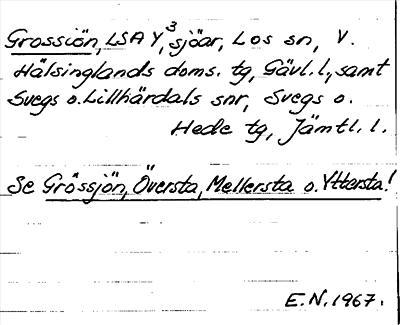 Grossiön, LSA Y, 3 sjöar, Los sn, V.
Hälsinglands doms. tg, Gävl. l., samt
Svegs o. Lillhärdals snr, Svegs o.
Hede tg, Jämtl. l.
Se Grössjön, Översta, Mellersta o. Yttersta!
E.N. 1967.